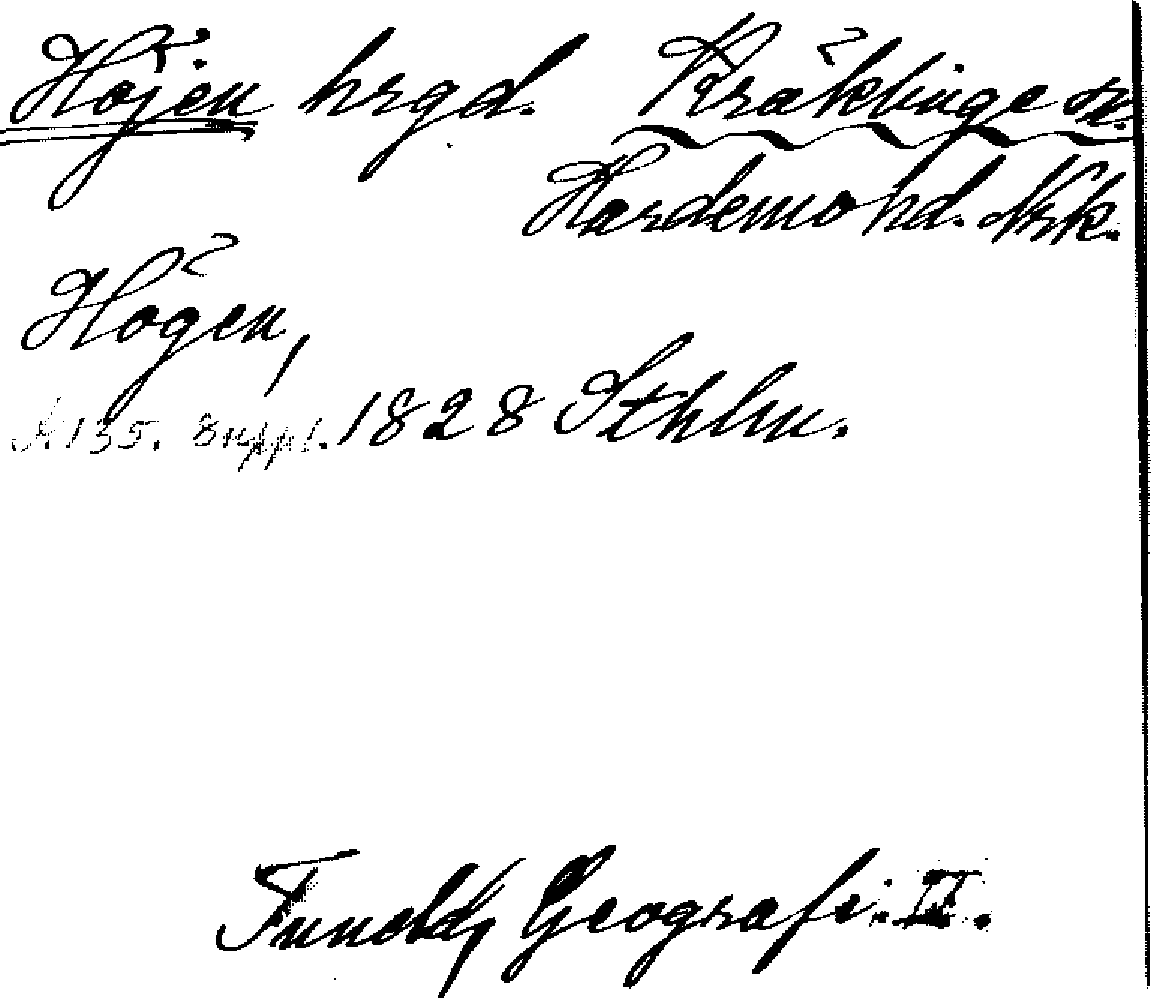 Höjen hrgd. Kräklinge sn.
Hardemo hd. Nrk.
Högen,
s. 135. Suppl. 1828 Sthlm.
Tuneld, Geografi. II.